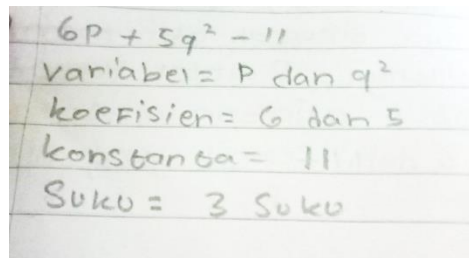 6p + 5q² - 11
variabel = p dan q²
koefisien = 6 dan 5
konstanta = 11
Suku = 3 Suku